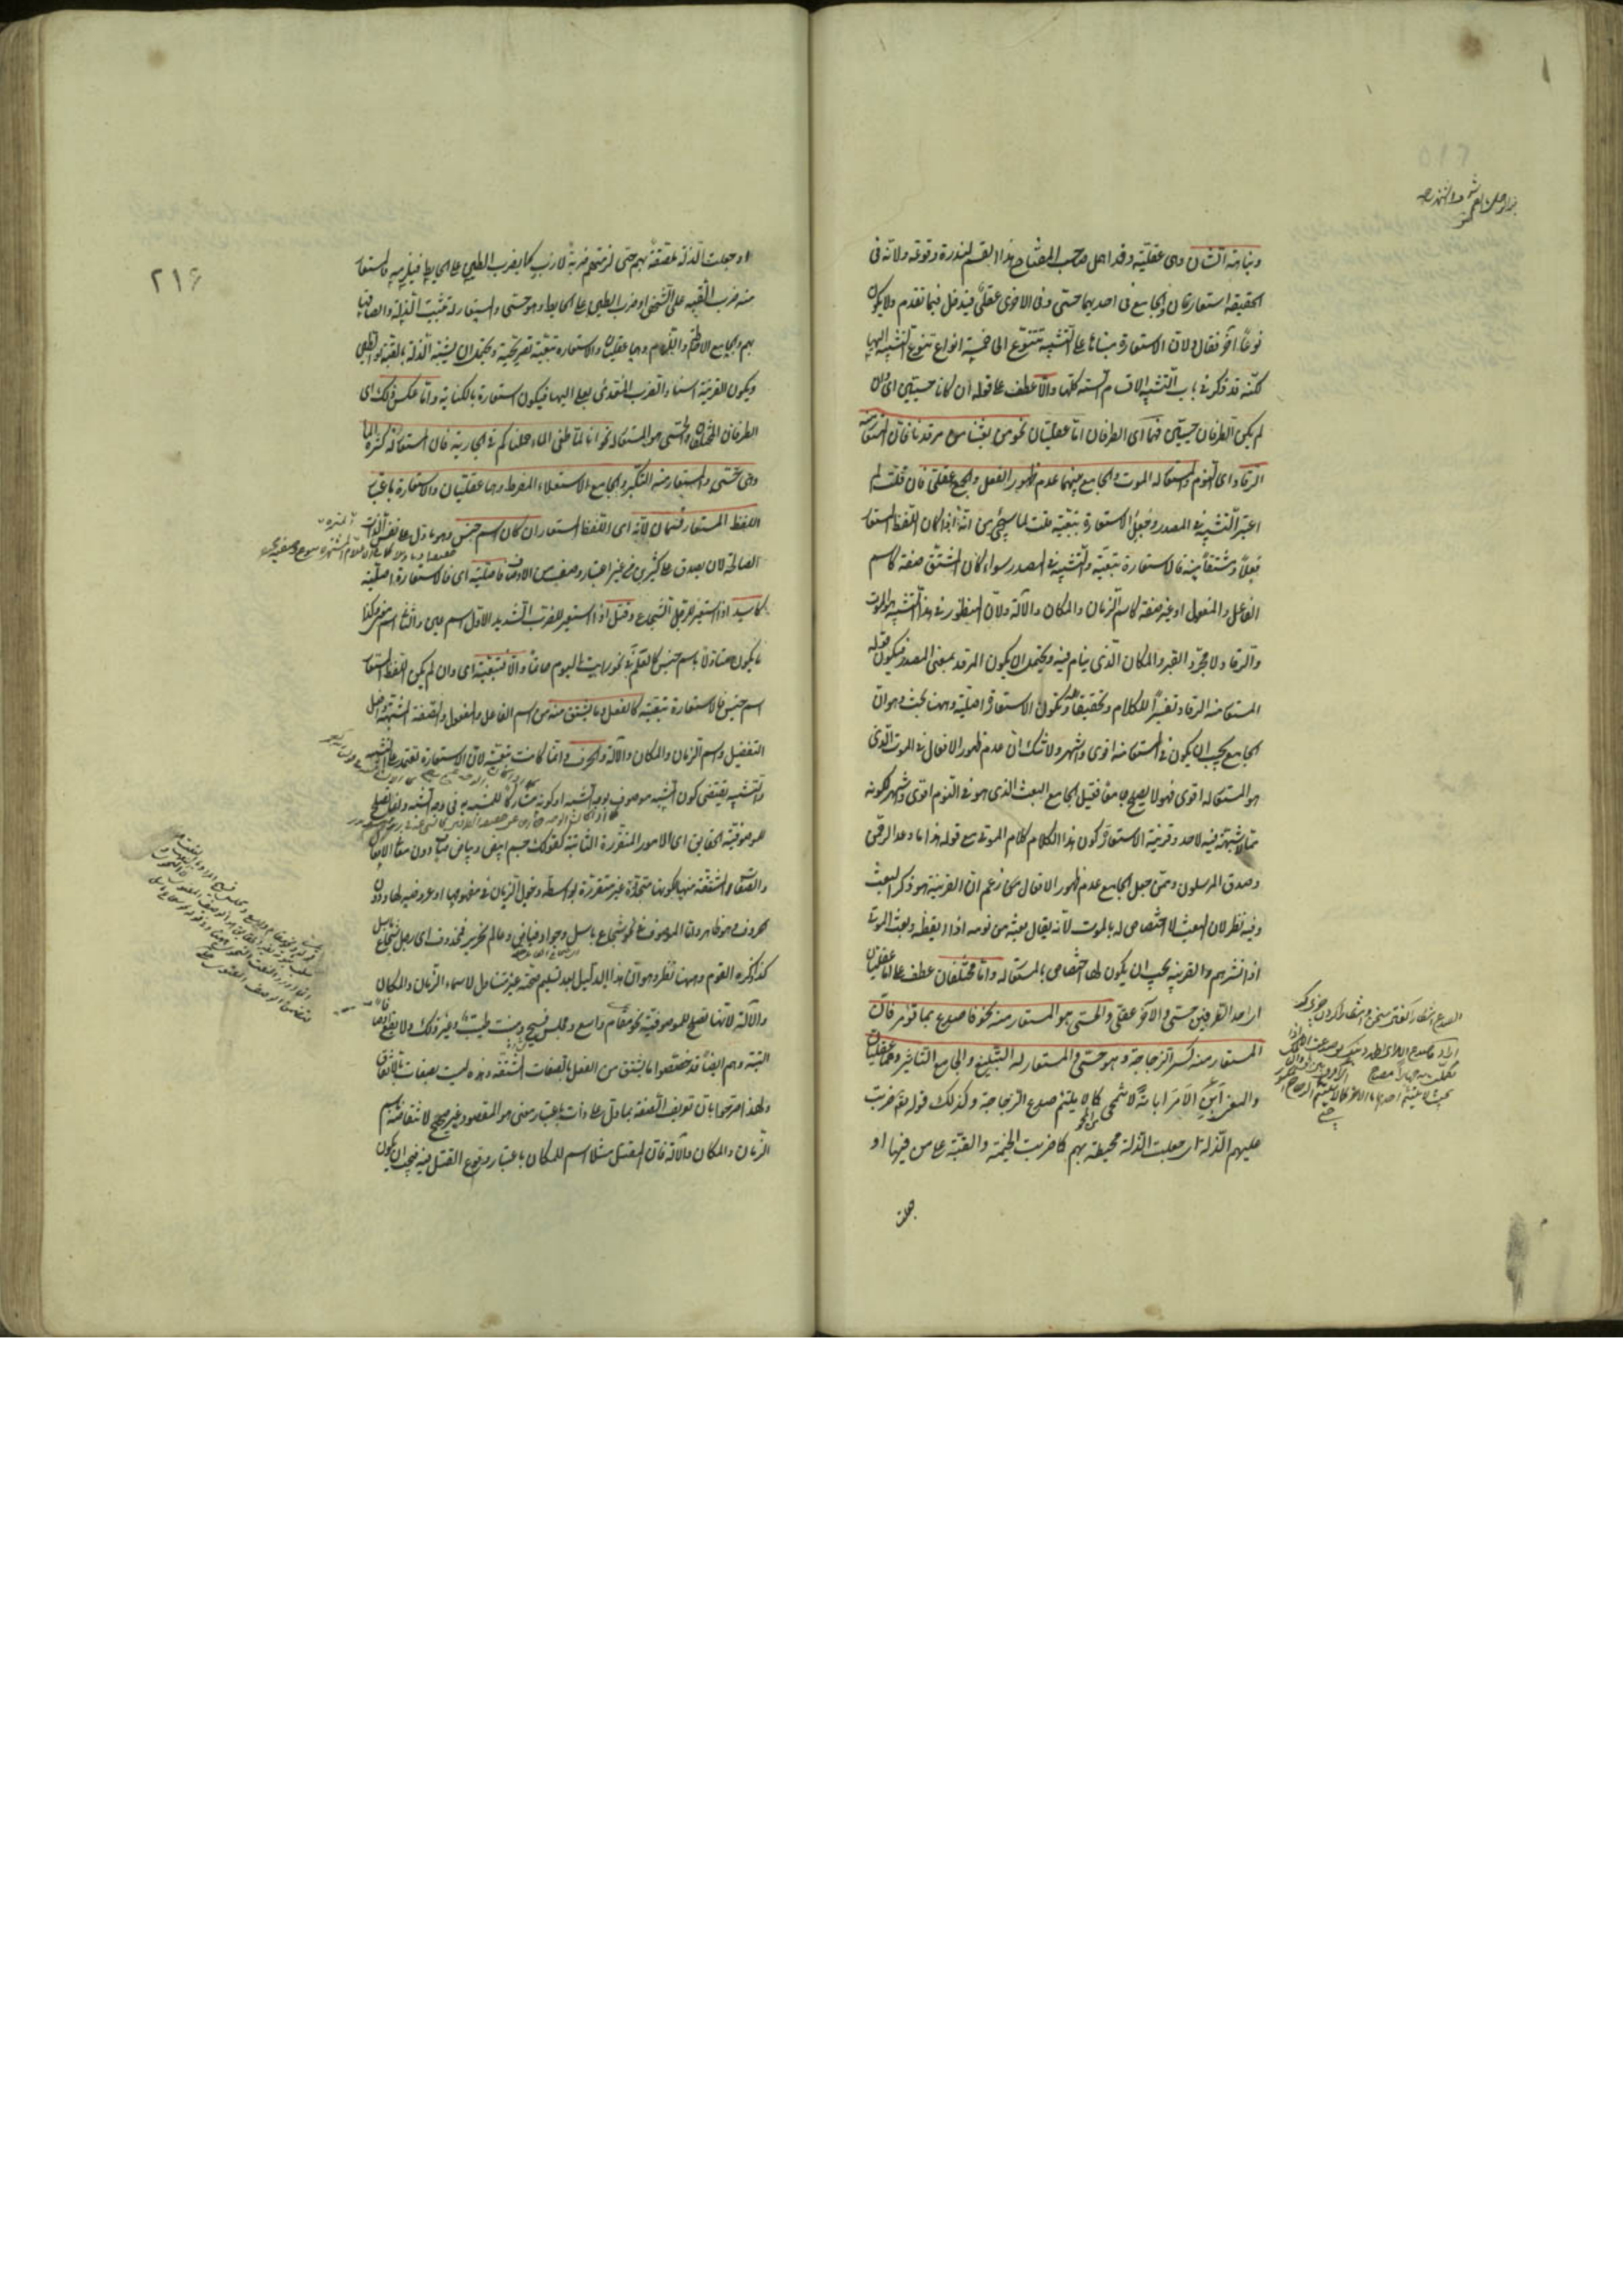 ونباهة الشان وهى عقليّة وقد اهمل صاحب المفتاح هذا القسم لندرة وقوعه ولانّه فى
الحقيقة استعارتان والجامع فى احديهما حسّى وفى الاخرى عقلىّ فيدخل فيما تقدم ولا يكون
نوعًا آخر فقال ولانّ الاستعارة مبناها على التشبيه تتنوّع الى خمسة انواع تنوّع التشبيه اليها
لكنّه قد ذكر فى باب التشبيه الاقسام الستة كلّها والّا عطف على قوله ان كانا حسيّين اى وان
لم يكن الطرفان حسيّين فهما اى الطرفان امّا عقليّان نحو من بعثنا من مرقدنا فانّ المستعار منه
الرقاد اى النوم والمستعار له الموت والجامع بينهما عدم ظهور الفعل والجميع عقلىّ فان قلت لم
اعتبر التشبيه فى المصدر وجعل الاستعارة تبعيّة قلت لما سيجئ من انّه اذا كان اللفظ المستعار
فعلاً او مشتقاً منه فالاستعارة تبعيّة والتشبيه فى المصدر سواء كان المشتق صفة كاسم
الفاعل والمفعول او غير صفة كاسم الزمان والمكان والآلة ولانّ المنظور فى هذا التشبيه هو الموت
والرقاد لا مجرّد القبر والمكان الّذى ينام فيه ويحتمل ان يكون المرقد بمعنى المصدر فيكون قوله
المستعار منه الرقاد تفسيراً للكلام وتحقيقاً له وتكون الاستعارة اصليّة وههنا بحث وهو انّ
الجامع يجب ان يكون فى المستعار منه اقوى واشهر ولا شك انّ عدم ظهور الافعال فى الموت الّذى
هو المستعار له اقوى فهو لا يصلح جامعًا فقيل الجامع البعث الذى هو فى النوم اقوى واشهر لكونه
ممّا لا شبهة فيه لاحد وقرينة الاستعارة كون هذا الكلام كلام الموتى مع قوله هذا ما وعد الرحمن
وصدق المرسلون ومتى جعل الجامع عدم ظهور الافعال فمن زعم انّ القرينة هو ذكر البعث
وفيه نظر لان البعث لا اختصاص له بالموت لانّه يقال بعثه من نومه اذا ايقظه وبعث الموتى
اذا انشرهم والقرينة يجب ان يكون لها اختصاص بالمستعار له وامّا مختلفان عطف على امّا عقليّان
اى احد الطرفين حسّى والآخر عقلى والحسّى هو المستعار منه نحو فاصدع بما تؤمر فانّ
المستعار منه كسر الزجاجة وهو حسّى والمستعار له التبليغ والجامع التأثير وهما عقليّان
والمعنى اَبِنِ الاَمرَ ابانةً لا تنمحى كما لا يلتئم صدع الزجاجة وكذلك قوله تعالى ضربت
عليهم الذلّة اى جعلت الذلّة محيطة بهم كما ضربت الخيمة والقبّة على من فيها او
جعلت
٢١٦
او جعلت الذلّة ملصقة بهم حتى لزمتهم ضربة لازب كما يضرب الطين على الحائط فيلزمه فالمستعار
منه ضرب القبّة على الشخص او ضرب الطين على الحائط وهو حسّى والمستعار له تثبيت الذلّة والصاقها
بهم والجامع الاحاطة واللزوم وهما عقليّان والاستعارة تبعيّة تصريحيّة ويحتمل ان يشبّه الذلّة بالقبّة او الطين
ويكون القرينة اسناد الضرب المتعدّى بعلى اليها فيكون استعارة بالكناية وامّا عكس ذلك اى
الطرفان المختلفان والحسّى هو المستعار له نحو انّا لمّا طغى الماء حملناكم فى الجارية فان المستعار له كثرة الماء
وهى حسّى والمستعار منه التكبّر والجامع الاستعلاء المفرط وهما عقليّان والاستعارة باعتبار
اللفظ المستعار قسمان لانّه اى اللفظ المستعار ان كان اسم جنس وهو ما دلّ على نفس الذات
الصالحة لان يصدق على كثيرين من غير اعتبار وصف من الاوصاف فاصليّة اى فالاستعارة اصليّة
كاسد اذا استعير للرجل الشجاع وقتل اذا استعير للضرب الشديد الاوّل اسم عين والثانى اسم معنى وكذا
ما يكون متأوّلاً باسم جنس كالعلم فى نحو رأيت اليوم حاتماً والّا فتبعيّة اى وان لم يكن اللفظ المستعار
اسم جنس فالاستعارة تبعيّة كالفعل وما يشتق منه من اسم الفاعل والمفعول والصفة المشبّهة وافعل
التفضيل واسم الزمان والمكان والآلة والحرف وانّما كانت تبعيّة لانّ الاستعارة تعتمد على التشبيه
والتشبيه يقتضى كون المشبّه موصوفا بوجه الشبه او بكونه مشاركًا للمشبّه به فى وجه الشبه وانّما يصلح
للموصوفيّة الحقايق اى الامور المتقرّرة الثابتة كقولك جسم ابيض وبياض صاف دون معانى الافعال
والصفات المشتقّة منها لكونها متجدّدة غير متقرّرة بواسطة دخول الزمان فى مفهومها او عروضه لها ودون
الحروف وهو ظاهر وامّا الموصوف فى نحو شجاع باسل وجواد فيّاض وعالم نحرير فمحذوف اى رجل شجاع باسل
كذا ذكره القوم وههنا نظر وهو انّ هذا الدليل بعد تسليم صحّته غير متناول لاسماء الزمان والمكان
والآلة لانّها تصلح للموصوفيّة نحو مقام واسع ومجلس فسيح ومنبت طيّب وغير ذلك ولا يقع اوصافًا
البتة وهم ايضاً قد خصّصوا ما يشتق من الفعل بالصفات المشتقّة وهذه ليست بصفات بالاتفاق
ولهذا صرّحوا بانّ تعريف الصفة بما دلّ على ذات باعتبار معنى هو المقصود غير صحيح لانتقاضه باسم
الزمان والمكان والآلة فانّ المقتل مثلا اسم للمكان باعتبار وقوع القتل فيه فيجب ان يكون